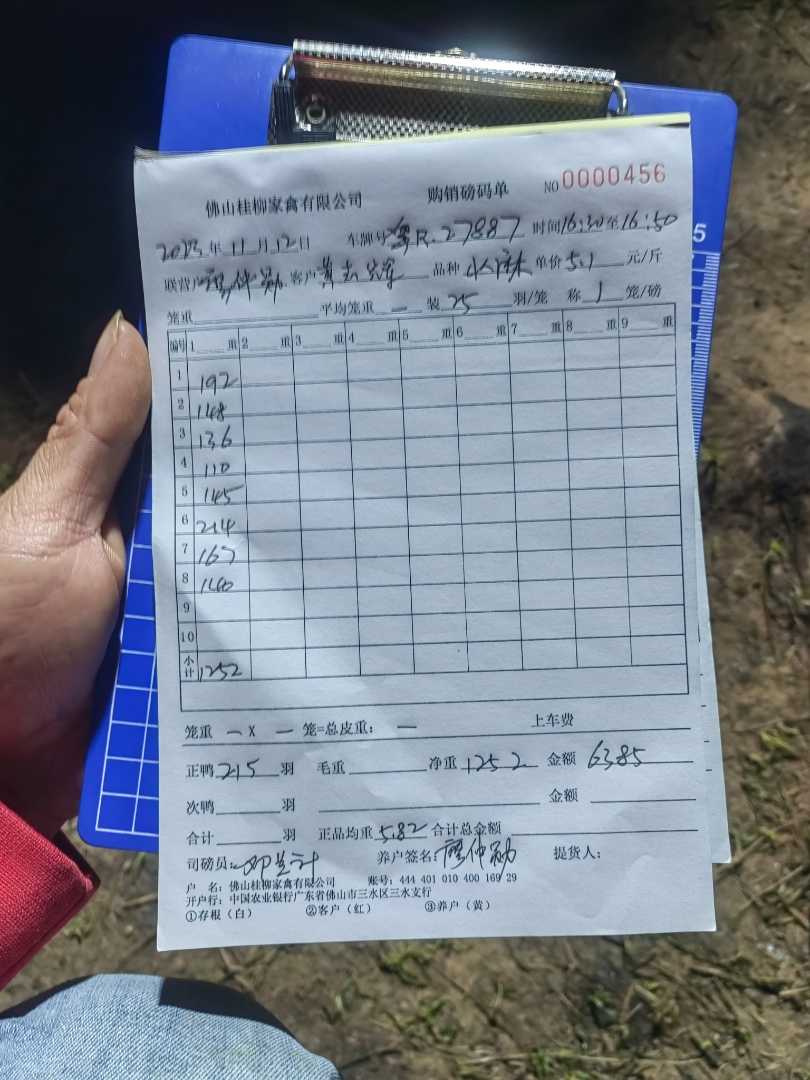 佛山桂柳家禽有限公司 购销磅码单 NO 0000456
2023年11月12日 车牌号粤R.27887 时间16:30至16:50
联营户 仲勋 客户 黄志 品种 单价5.1元/斤
笼重 平均笼重 — 装25羽/笼 称1笼/磅
编号 1 重 2 重 3 重 4 重 5 重 6 重 7 重 8 重 9 重
1 192
2 148
3 136
4 110
5 145
6 214
7 167
8 140
9
10
小计 1252
笼重 — X — 笼=总皮重: — 上车费
正鸭215羽 毛重 净重1252 金额6385
次鸭 羽 金额
合计 羽 正品均重5.82 合计总金额
司磅员: 邓 养户签名: 仲勋 提货人:
户 名: 佛山桂柳家禽有限公司 账号: 444 401 010 400 169 29
开户行: 中国农业银行广东省佛山市三水区三水支行
①存根（白） ②客户（红） ③养户（黄）
5